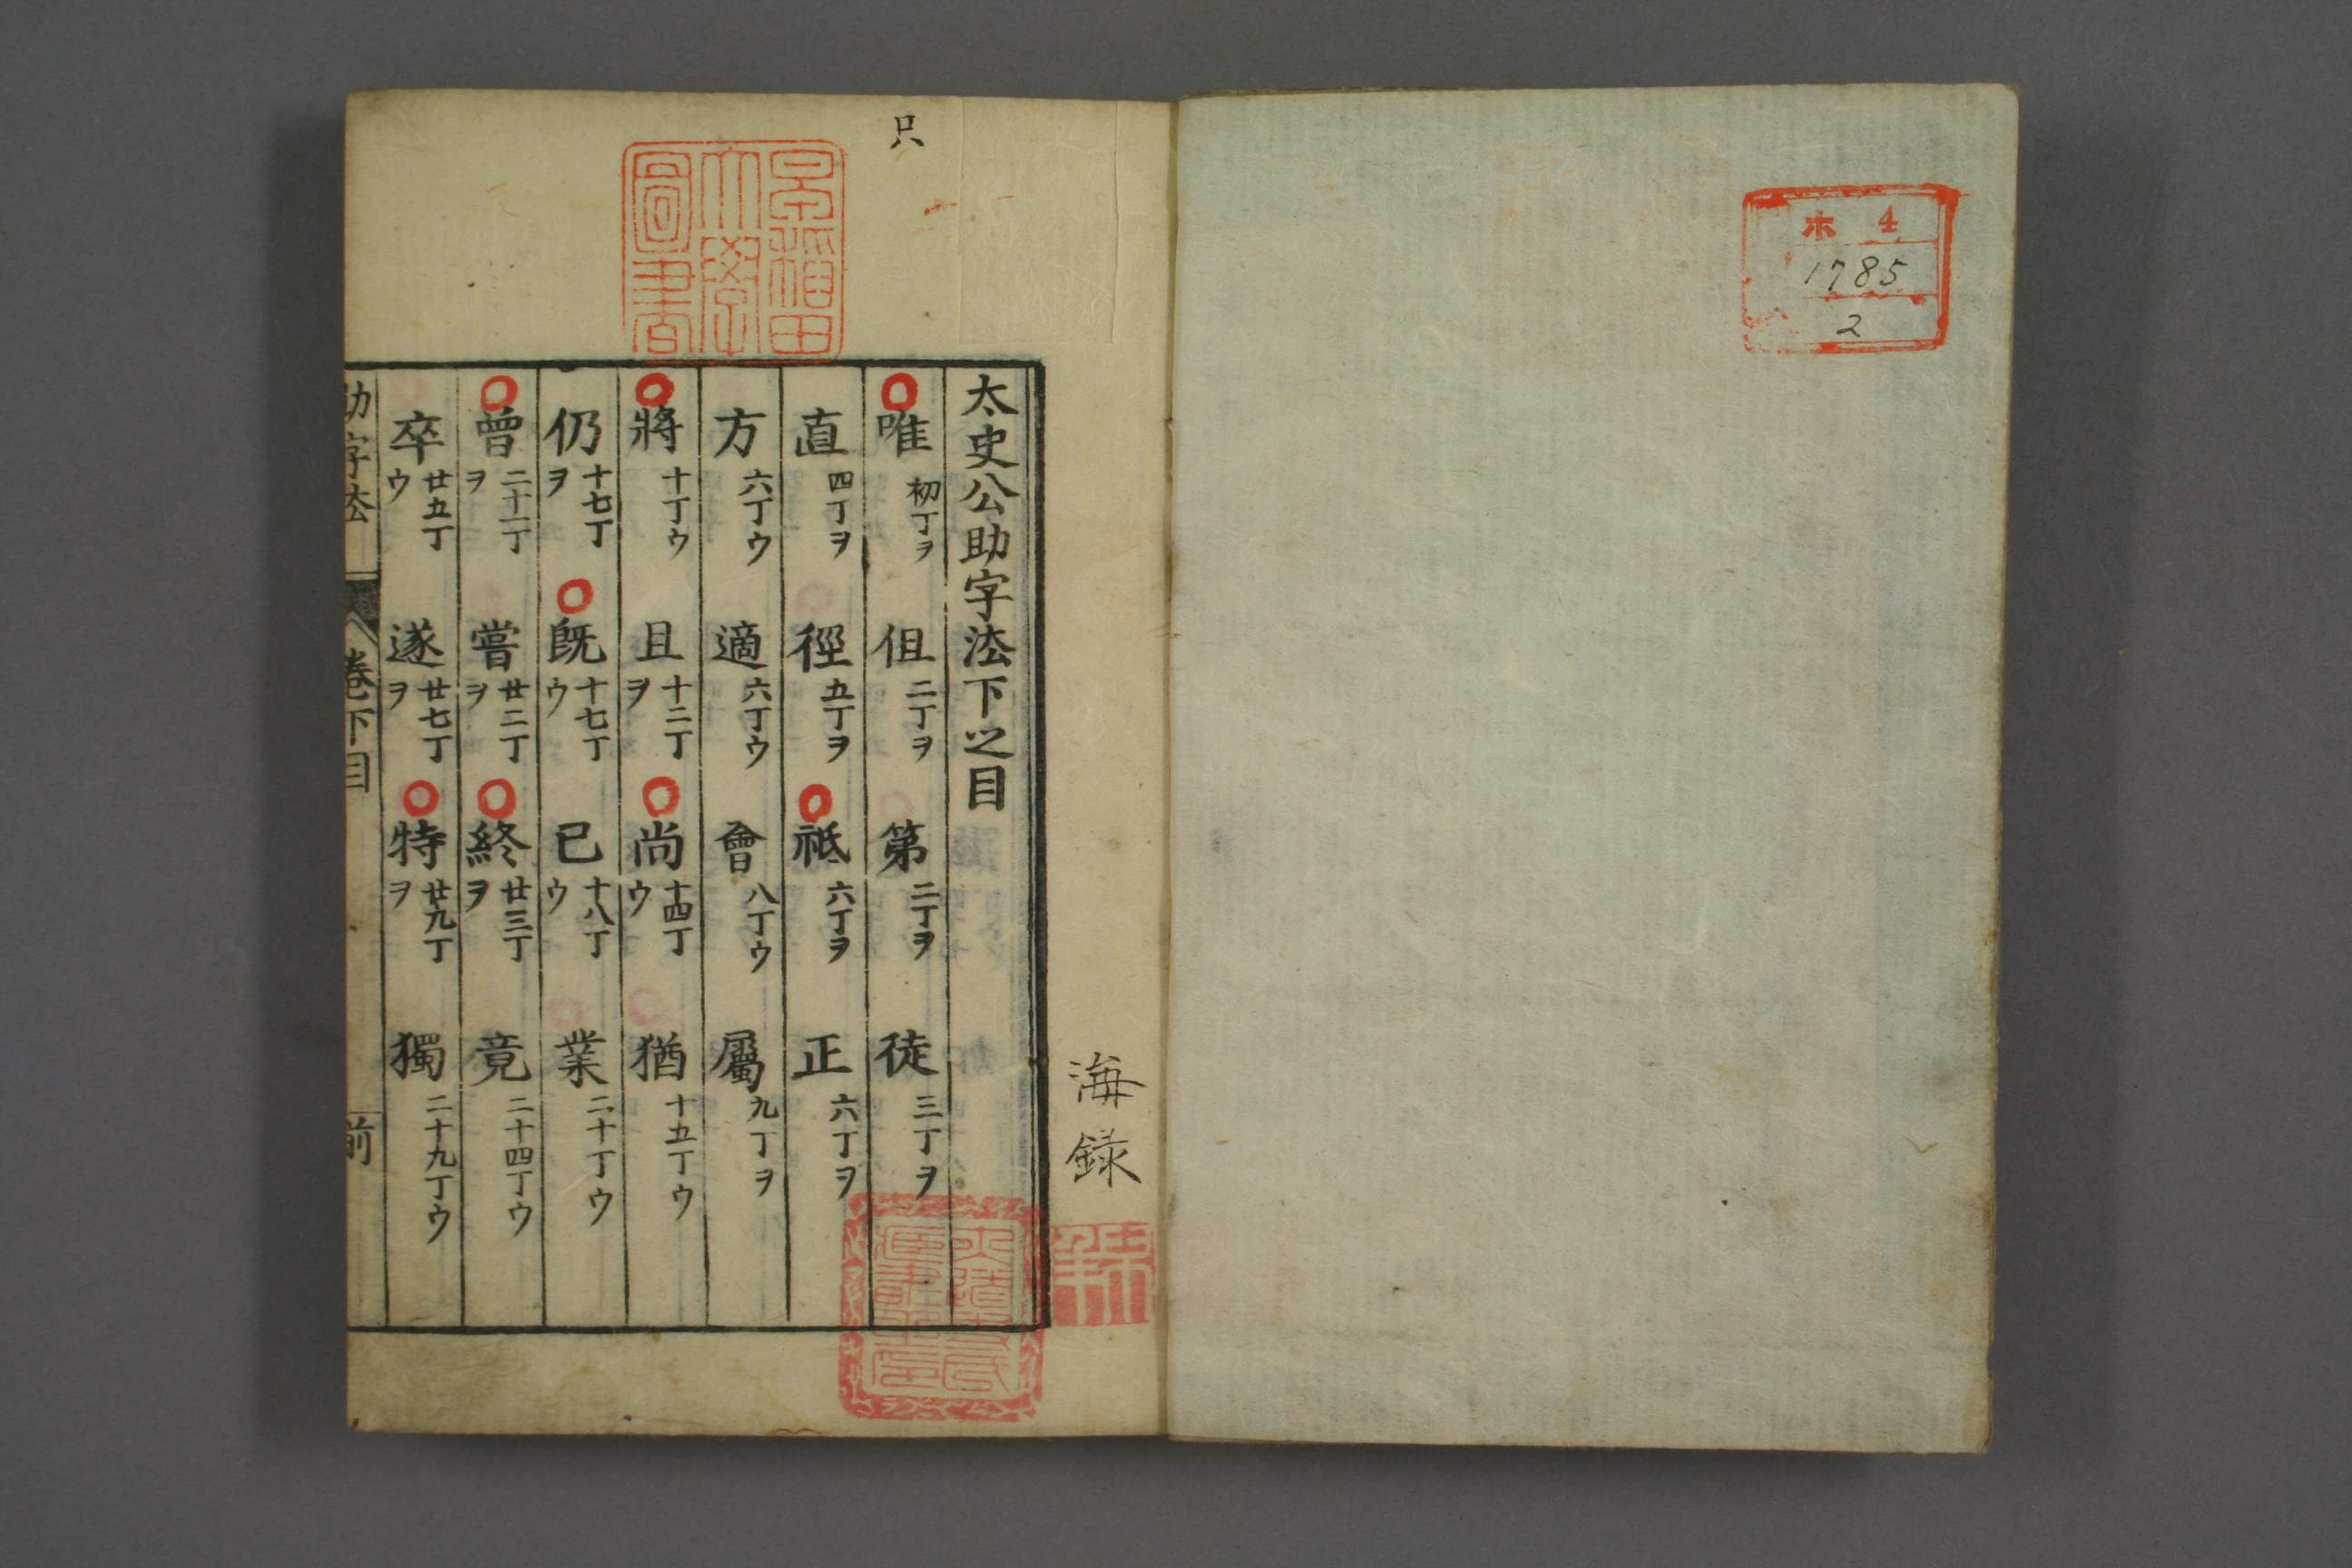 ホ 4
1785
2
海録
只
早稲田大學圖書
太史公助字法下之目
唯 初丁ヲ 但 二丁ヲ 第 二丁ヲ 徒 三丁ヲ
直 四丁ヲ 徑 五丁ヲ 祗 六丁ヲ 正 六丁ヲ
方 六丁ウ 適 六丁ウ 會 八丁ウ 屬 九丁ヲ
將 十丁ウ 且 十二丁ヲ 尚 十四丁ウ 猶 十五丁ウ
仍 十七丁ヲ 既 十七丁ウ 已 十八丁ウ 業 二十丁ウ
曾 二十一丁ヲ 嘗 廿二丁ヲ 終 廿三丁ヲ 竟 二十四丁ウ
卒 廿五丁ウ 遂 廿七丁ヲ 特 廿九丁ヲ 獨 二十九丁ウ
助字法 卷下目 前